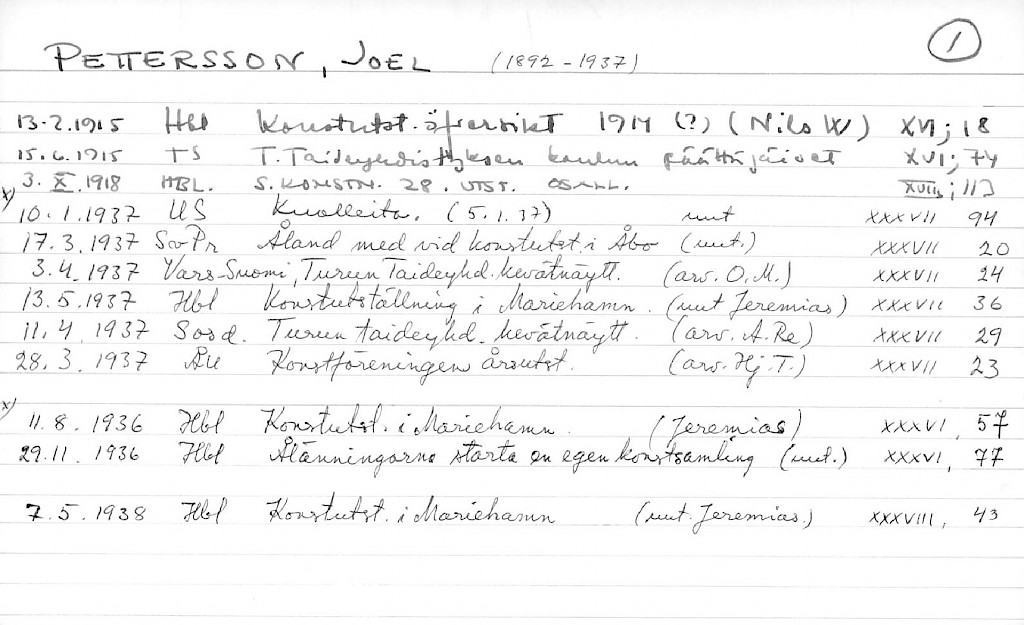 PETTERSSON, JOEL (1892-1937) 1
13.2.1915 Hbl Konstutst. översikt 1914 (?) (Nils W) XVI; 18
15.6.1915 TS T. Taideyhdistyksen koulun päättäjäiset XVI; 74
3. X. 1918 HBL. S. KONSTN. 28. UTST. OSALL. XVIII; 113
x) 10.1.1937 US Kuolleita. (5.1.37) uut XXXVII 94
17.3.1937 SvPr Åland med vid konstutst. i Åbo (uut.) XXXVII 20
3.4.1937 Vars-Suomi, Turun Taideyhd. kevätnäytt. (arv. O.M.) XXXVII 24
13.5.1937 Hbl Konstutställning i Mariehamn. (uut Jeremias) XXXVII 36
11.4.1937 Sosd. Turun taideyhd. kevätnäytt. (arv. A.Re) XXXVII 29
28.3.1937 ÅU Konstföreningen årsutst. (arv. Hj.T.) XXXVII 23
x) 11.8.1936 Hbl Konstutst. i Mariehamn (Jeremias) XXXVI, 57
29.11.1936 Hbl Ålänningarna starta en egen konstsamling (uut.) XXXVI, 77
7.5.1938 Hbl Konstutst. i Mariehamn (uut. Jeremias.) XXXVIII, 43